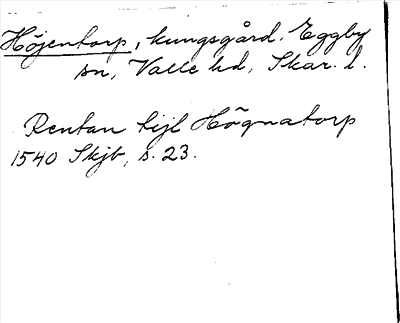 Höjentorp, kungsgård. Eggby
sn, Valle hd, Skar. l.
Rentan tijl Högnatorp
1540 Skjb, s. 23.